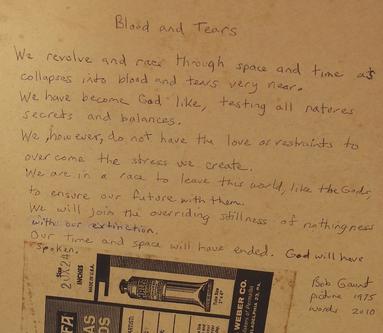 Blood and Tears
We revolve and race through space and time as
collapses into blood and tears very near.
We have become God like, testing all natures
secrets and balances.
We, however, do not have the love or restraints to
over come the stress we create.
We are in a race to leave this world, like the Gods,
to ensure our future with them.
We will join the overriding stillness of nothingness
with our extinction.
Our time and space will have ended. God will have
spoken.
Bob Gaunt
picture 1975
words 2010
Size
21X24
INCHES
MADE IN U.S.A.
WEBER CO.
PHILADELPHIA 23, PA.